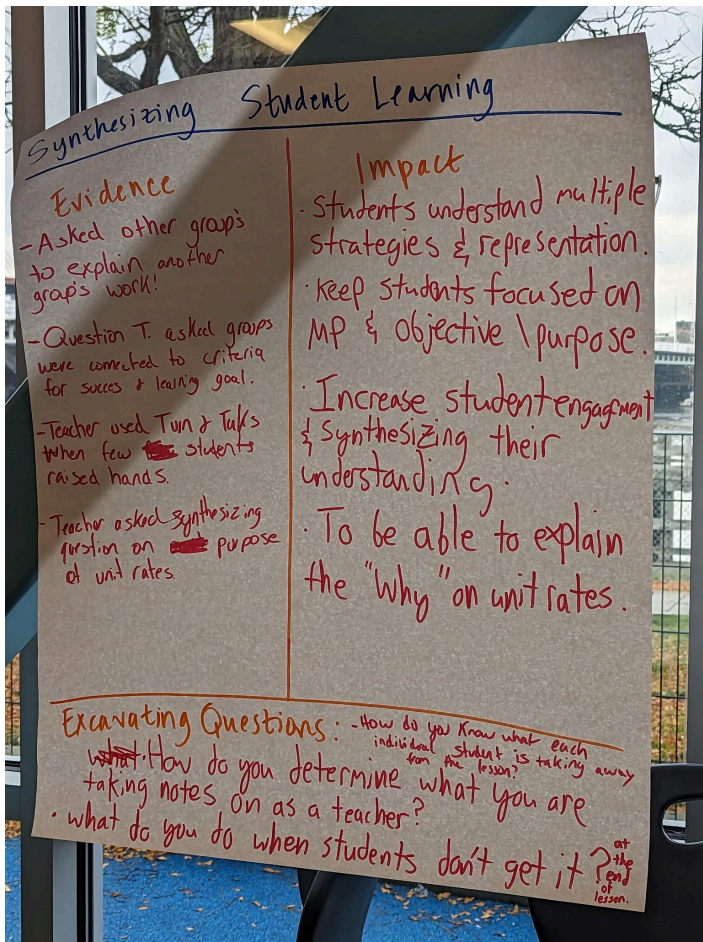 Synthesizing Student Learning
Evidence
- Asked other group's
to explain another
group's work!
- Question T. asked groups
were connected to criteria
for succes & learning goal.
- Teacher used Turn & Talks
when few students
raised hands.
- Teacher asked synthesizing
question on purpose
of unit rates.
Impact
· Students understand multiple
strategies & representation.
· Keep students focused on
MP & objective \ purpose.
· Increase student engagement
& synthesizing their
understanding.
· To be able to explain
the "why" on unit rates.
Excavating Questions:
- How do you know what each
individual student is taking away
from the lesson?
· How do you determine what you are
taking notes on as a teacher?
· what do you do when students don't get it?
at
the
end
of
lesson.